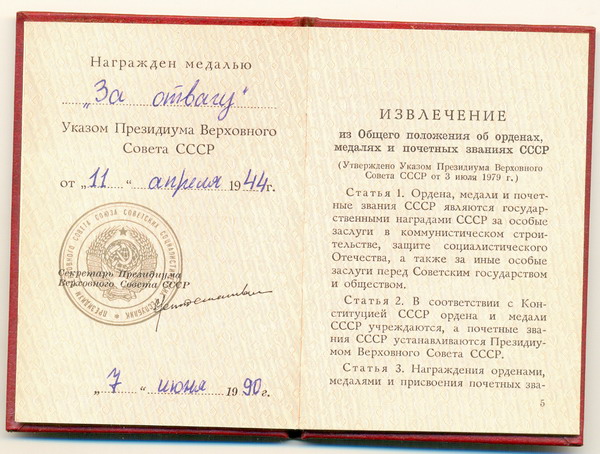 Награжден медалью
„За отвагу“
Указом Президиума Верховного
Совета СССР
от „11“ апреля 1944г.
Секретарь Президиума
Верховного Совета СССР
„7“ июня 1990г.
ИЗВЛЕЧЕНИЕ
из Общего положения об орденах,
медалях и почетных званиях СССР
(Утверждено Указом Президиума Верховного
Совета СССР от 3 июля 1979 г.)
Статья 1. Ордена, медали и почет-
ные звания СССР являются государ-
ственными наградами СССР за особые
заслуги в коммунистическом строи-
тельстве, защите социалистического
Отечества, а также за иные особые
заслуги перед Советским государством
и обществом.
Статья 2. В соответствии с Кон-
ституцией СССР ордена и медали
СССР учреждаются, а почетные зва-
ния СССР устанавливаются Президиу-
мом Верховного Совета СССР.
Статья 3. Награждения орденами,
медалями и присвоения почетных зва-
5